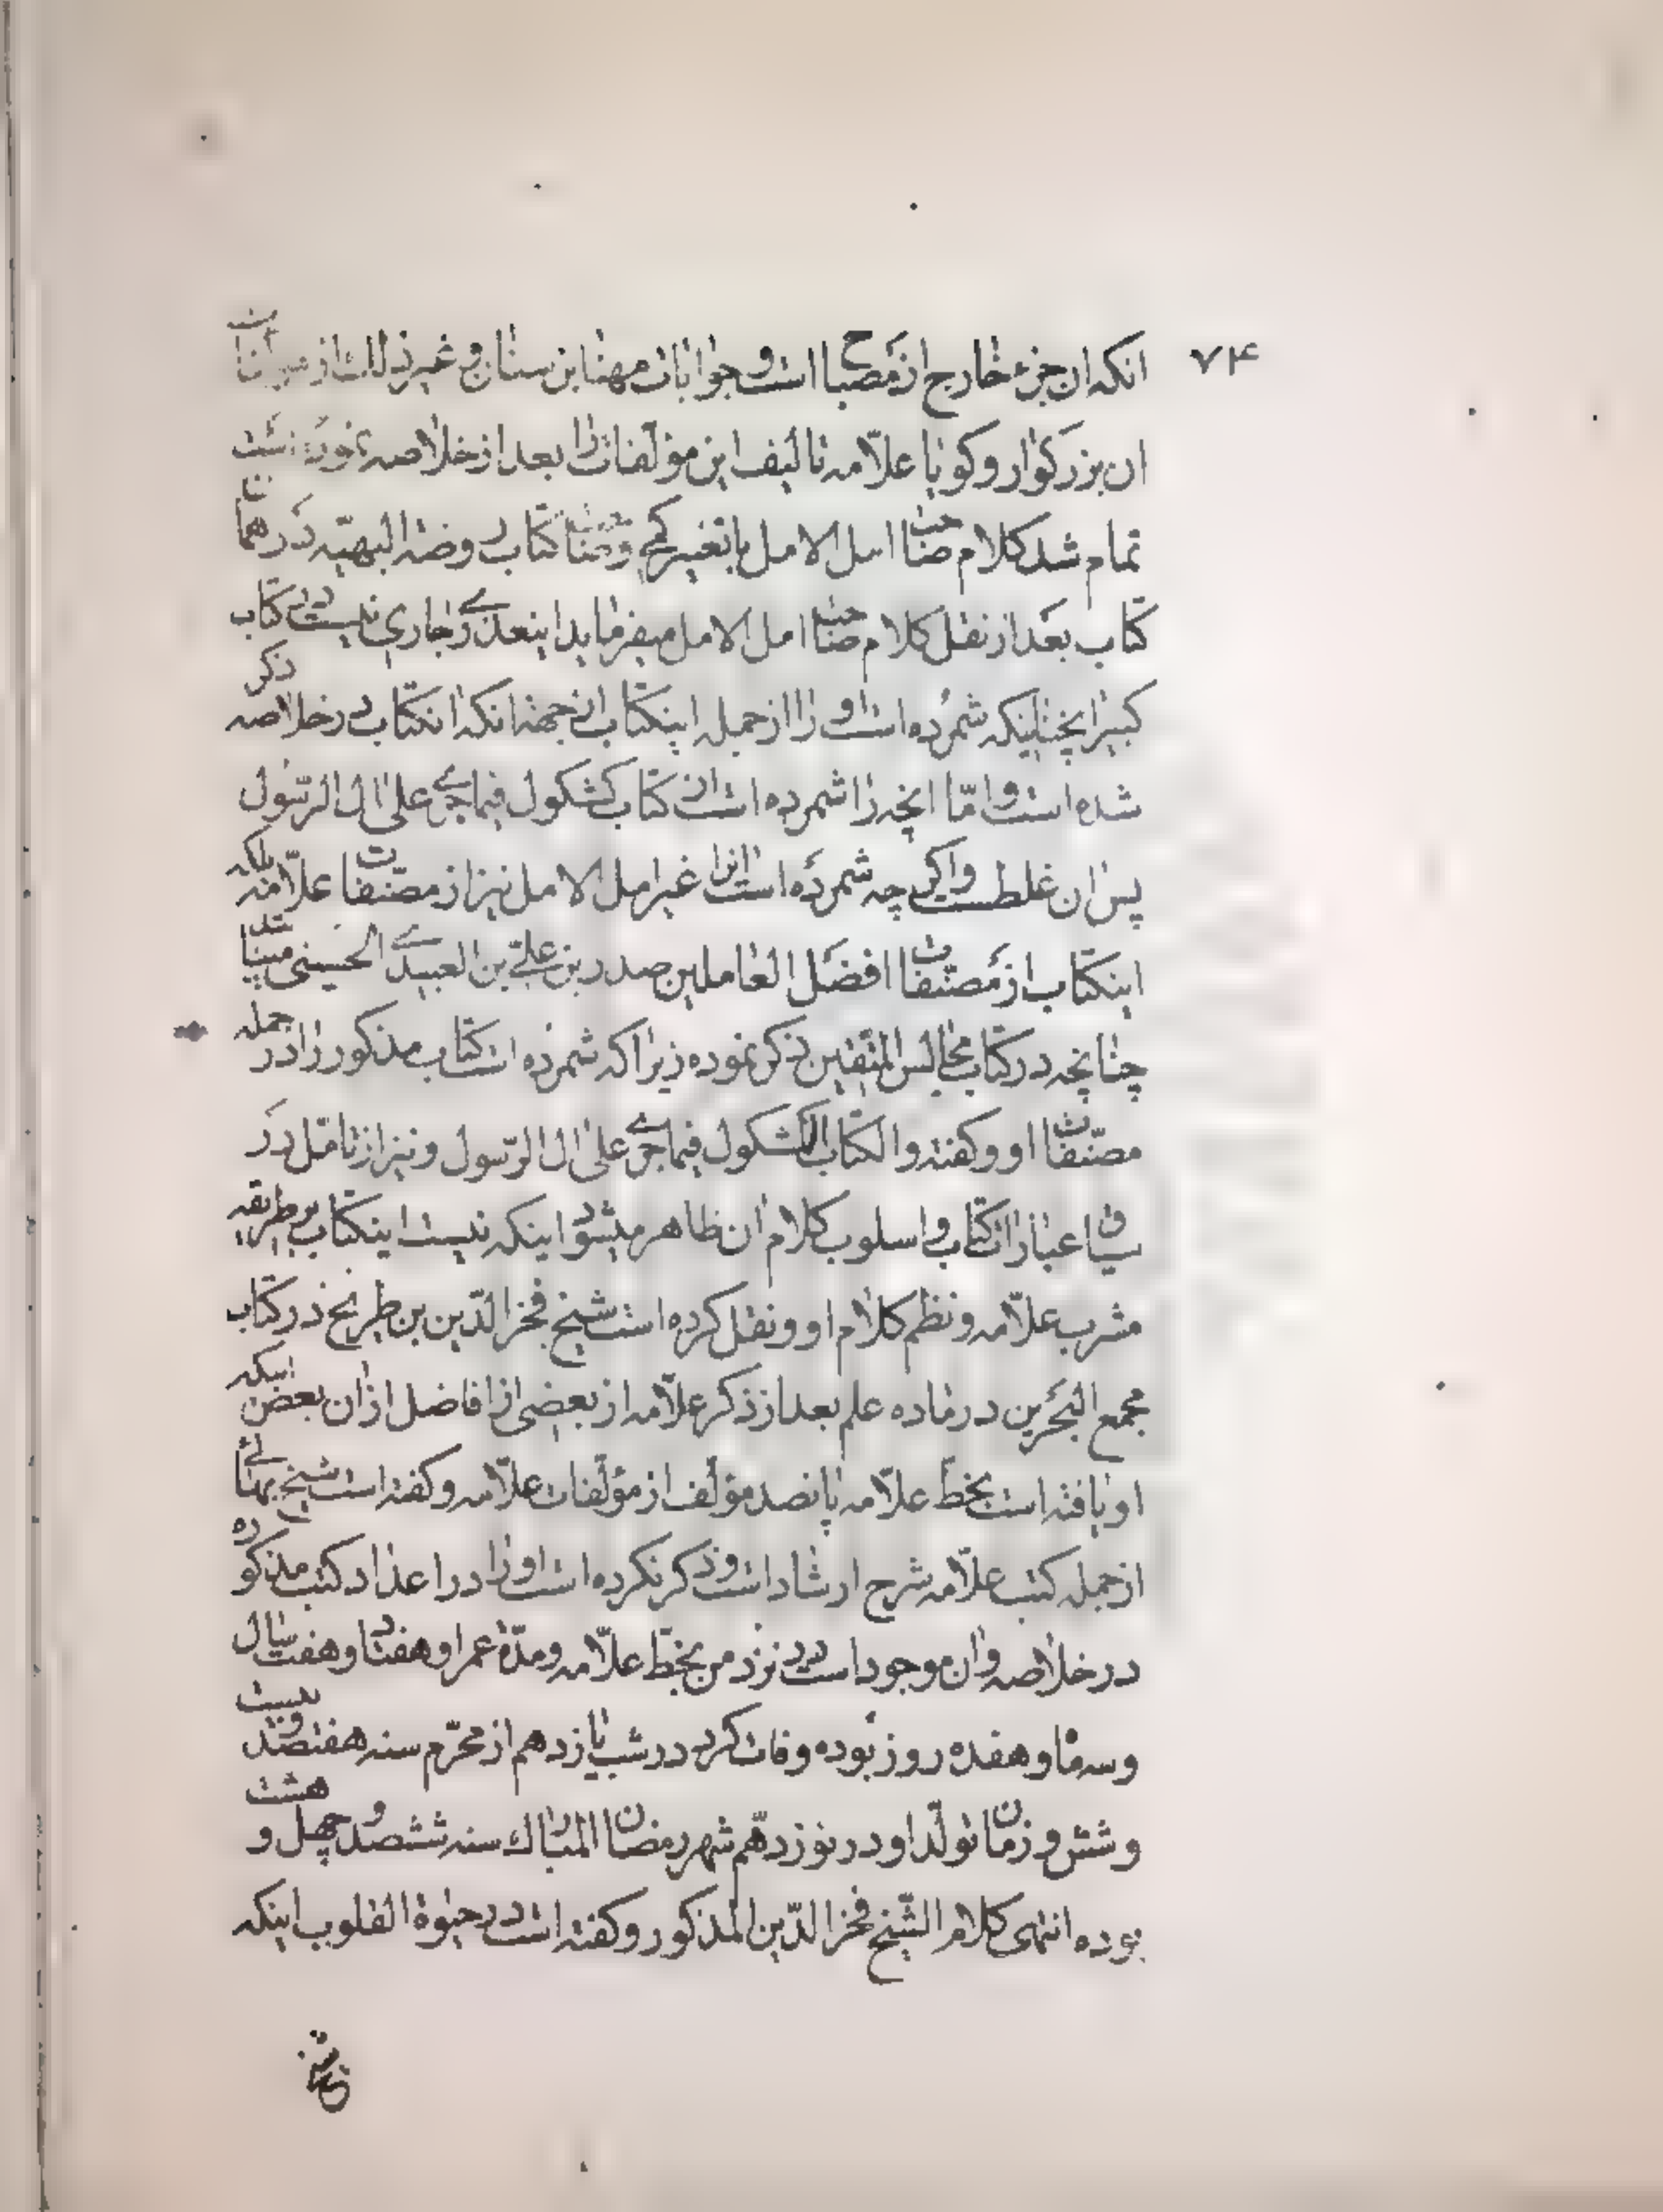 ۷۴
انکه ان جزء خارج از مصباح است و جوابات مهنا بن سنان و غیر ذلک از
ان بزرکوار و کویا علاّمه تالیف این مؤلّفات را بعد از خلاصه نموده است
تمام شد کلام صاحب امل الامل با تغییر کمی و صاحب کتاب روضة البهیّه در همان
کتاب بعد از نقل کلام صاحب امل الامل میفرماید اینعدّی و جاری نیست در کتاب
کبیر بجنابیکه شمرده است او را از جمله اینکتاب از جهة انکه انکتاب در خلاصه ذکر
شده است و امّا انچه را شمرده است از کتاب کشکول فیما جری علی ال الرّسول
پس ان غلطست و اکر چه شمرده است انرا غیر امل الامل نیز از مصنّفات علاّمه بلکه
اینکتاب از مصنّفات افضل العاملین صدر بن علیّ بن العبیدی الحسینی میباشد
چنانچه در کتاب مجالس المتّقین ذکر نموده زیرا که شمرده است کتاب مذکور را در جمله
مصنّفات او و کفته و الکتاب الکشکول فیما جری علی ال الرّسول و نیز از تامّل در
سیاق عبارات کتاب و اسلوب کلام ان ظاهر میشود اینکه نیست اینکتاب بر طریقه
مشرب علاّمه و نظم کلام او و نقل کرده است شیخ فخر الدّین بن طریح در کتاب
مجمع البحرین در ماده علم بعد از ذکر علاّمه از بعضی از افاضل از ان بعض اینکه
او یافته است بخط علاّمه پانصد مؤلّف از مؤلّفات علاّمه و کفته است شیخ بهائی
از جمله کتب علاّمه شرح ارشاد است و ذکر نکرده است او را در اعداد کتب مذکوره
در خلاصه و ان موجود است در نزد من بخطّ علاّمه و مدّة عمر او هفتاد و هفت سال
و سه ماه و هفده روز بوده وفات کرد در شب یازدهم از محرّم سنه هفتصد و بیست
و شش و زمان تولّد او در نوزدهم شهر رمضان المبارک سنه ششصد و چهل و هشت
بوده انتهی کلام الشّیخ فخر الدّین المذکور و کفته است در حیوة القلوب اینکه
شیخ